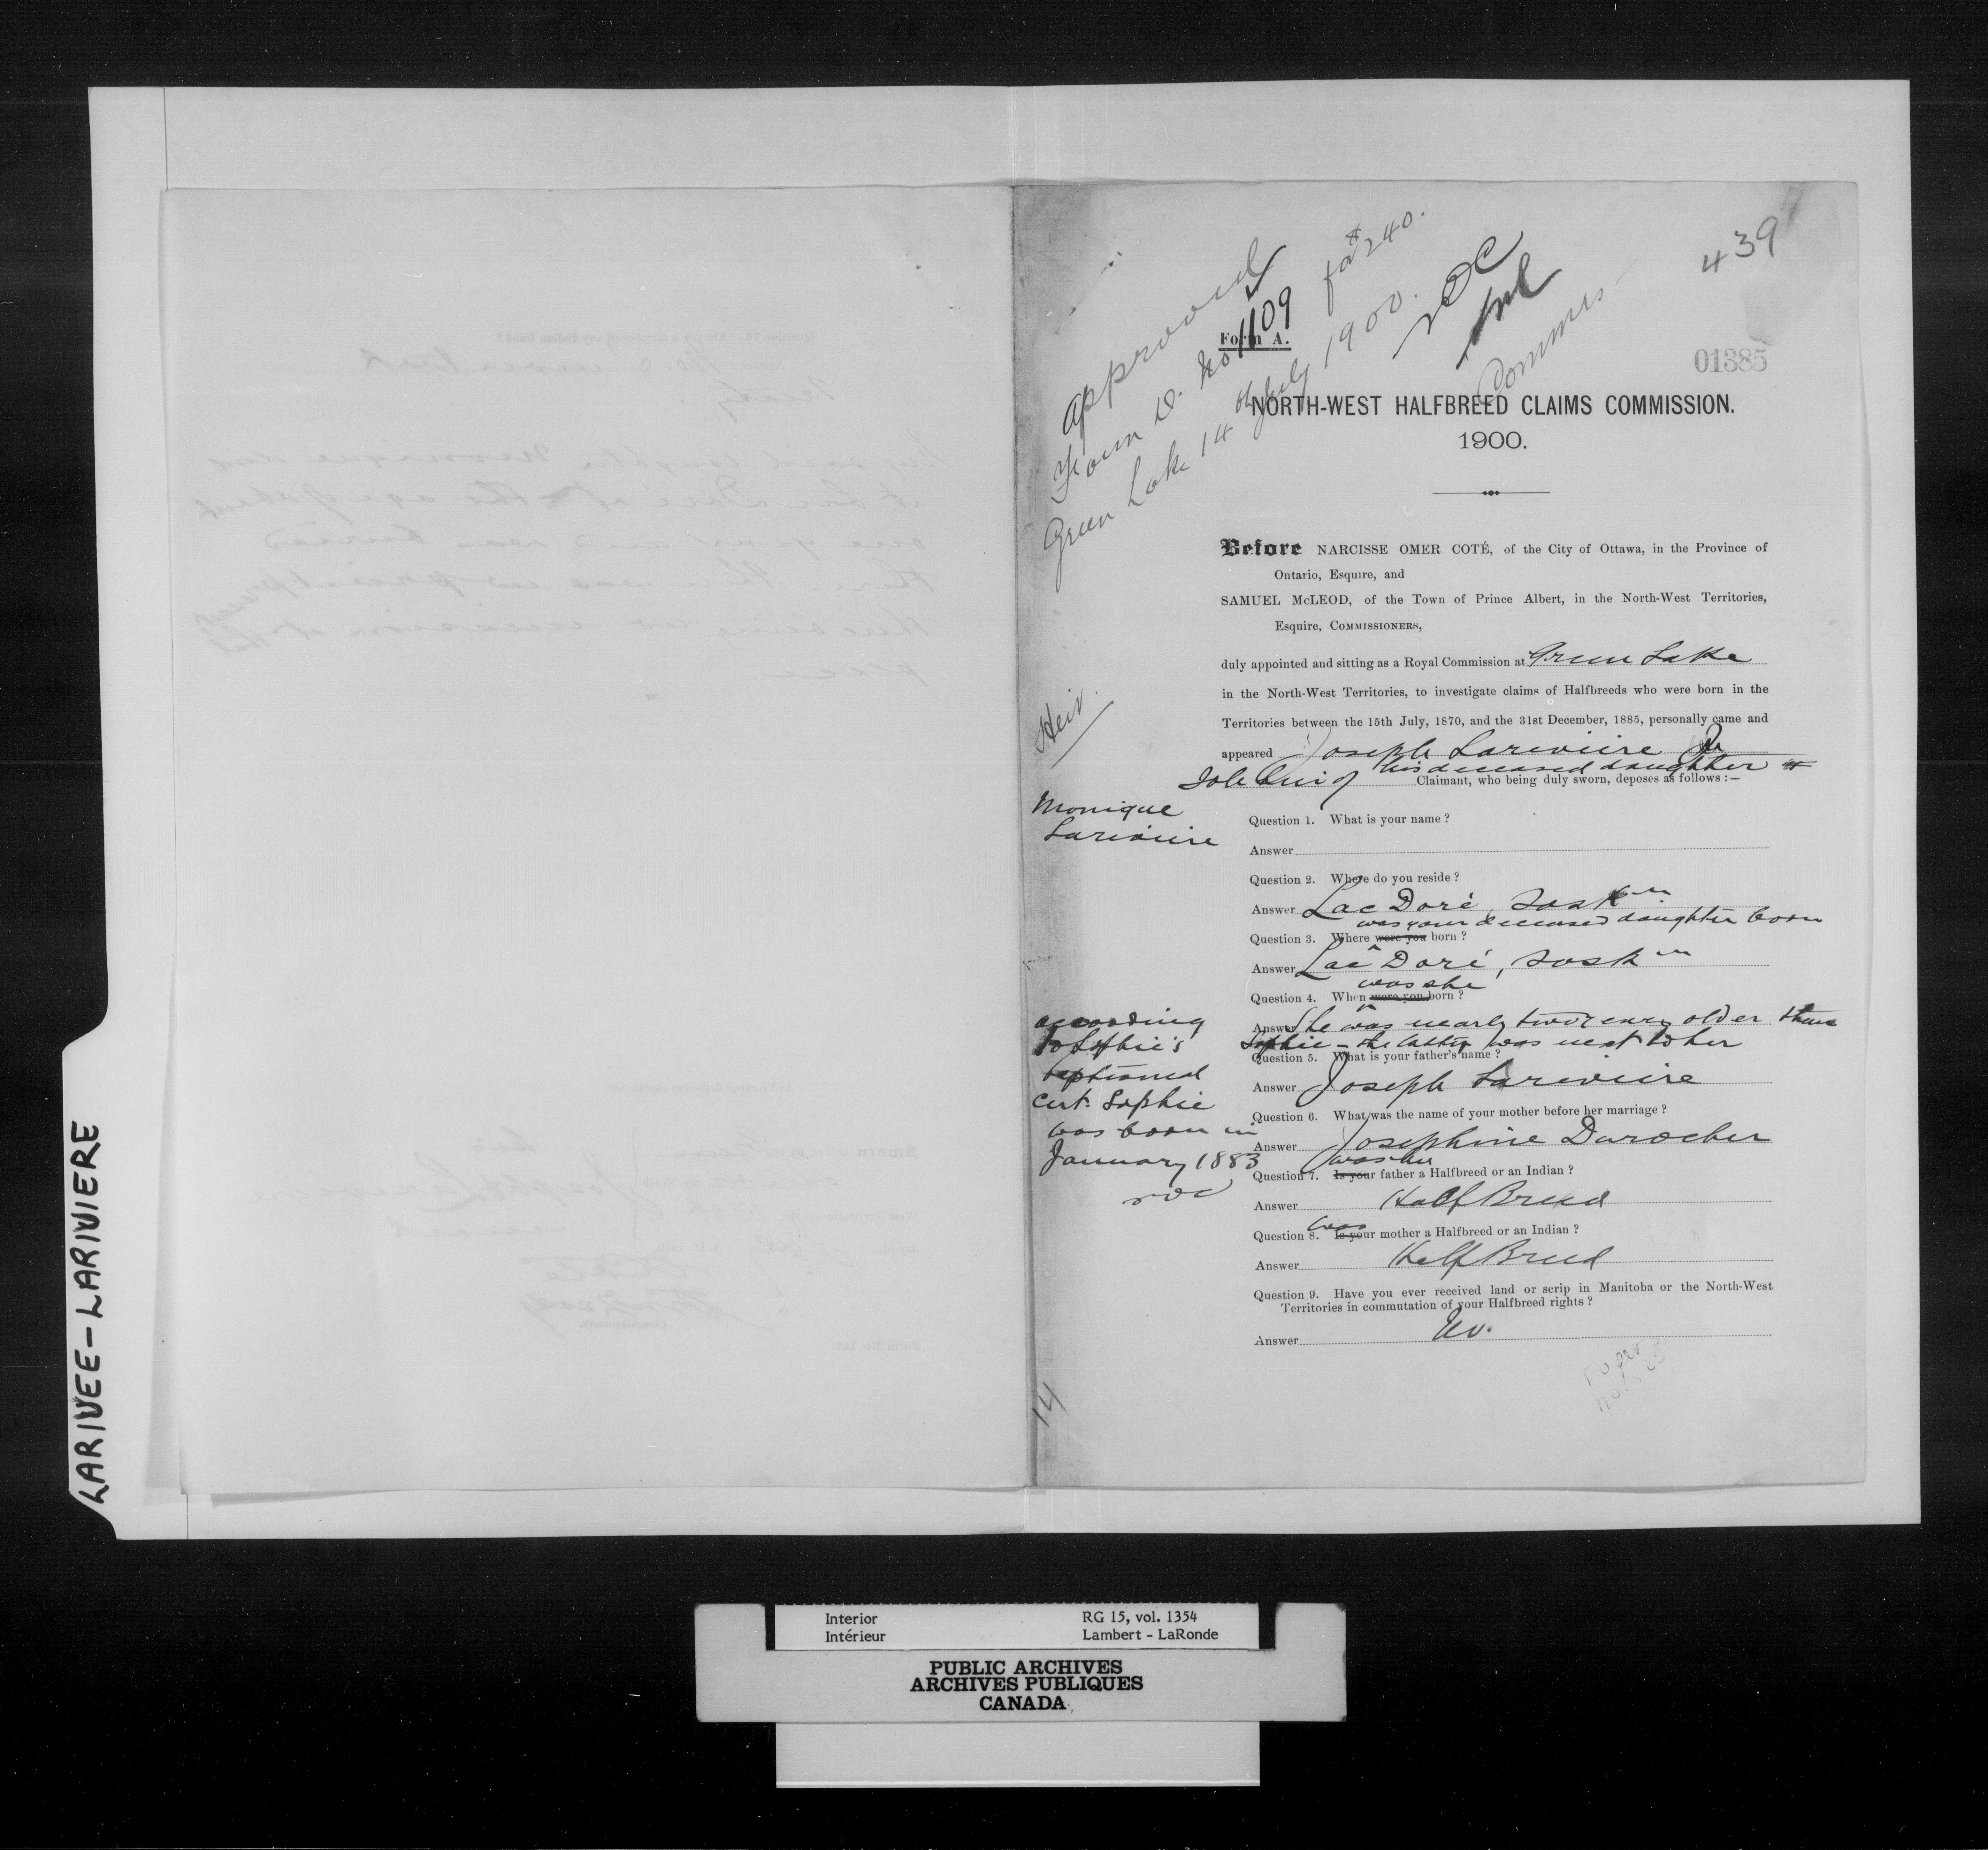 LARIVEE-LARIVIERE
439
approved
Form D. No 1109 for $240.
Green Lake 14th July 1900.
NOC
Commrs
Form A.
01385
NORTH-WEST HALFBREED CLAIMS COMMISSION.
1900.
Before NARCISSE OMER COTÉ, of the City of Ottawa, in the Province of
Ontario, Esquire, and
SAMUEL McLEOD, of the Town of Prince Albert, in the North-West Territories,
Esquire, COMMISSIONERS,
duly appointed and sitting as a Royal Commission at Green Lake
in the North-West Territories, to investigate claims of Halfbreeds who were born in the
Territories between the 15th July, 1870, and the 31st December, 1885, personally came and
Heir.
appeared Joseph Lariviere Jr
Sole heir of his deceased daughter
Claimant, who being duly sworn, deposes as follows:—
Monique
Lariviere
Question 1. What is your name?
Answer
Question 2. Where do you reside?
Answer Lac Doré, Sask
was your deceased daughter born
Question 3. Where were you born?
Answer Lac Doré, Sask
was she
Question 4. When were you born?
Answer She was nearly two years older than
Sophie - the latter was next to her
according
to Sophie's
baptismal
cert. Sophie
was born in
January 1883
NOC
Question 5. What is your father's name?
Answer Joseph Lariviere
Question 6. What was the name of your mother before her marriage?
Answer Josephine Durocher
was her
Question 7. Is your father a Halfbreed or an Indian?
Answer Half Breed
was
Question 8. Is your mother a Halfbreed or an Indian?
Answer Half Breed
Question 9. Have you ever received land or scrip in Manitoba or the North-West
Territories in commutation of your Halfbreed rights?
Answer No.
14
Interior
Intérieur
RG 15, vol. 1354
Lambert - LaRonde
PUBLIC ARCHIVES
ARCHIVES PUBLIQUES
CANADA